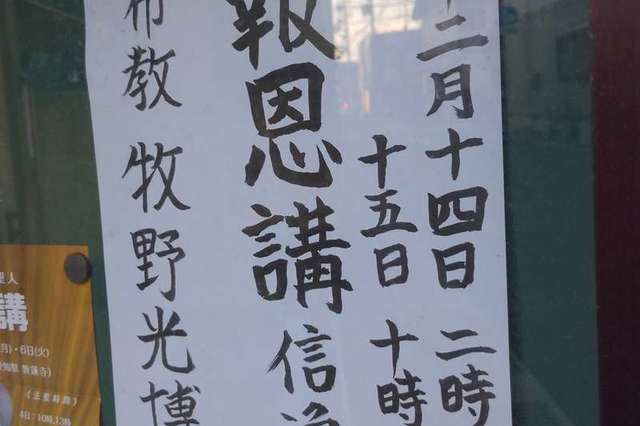 十二月十四日 二時
十五日 十時
報恩講 信
布教 牧野光博
講
月)・6日(火)
4日:10時、13時